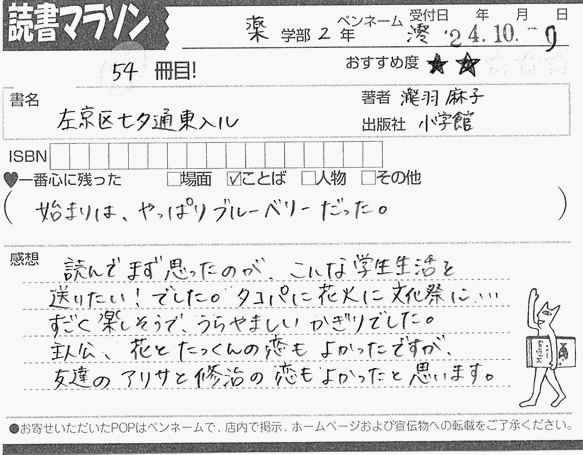 読書マラソン
薬 学部 2 年 ペンネーム 澪 受付日 年 月 日 '24.10.-9
54 冊目!
おすすめ度 ★★☆☆☆
書名 左京区七夕通東入ル
著者 瀧羽麻子
出版社 小学館
ISBN
♥一番心に残った □場面 ☑ことば □人物 □その他
(始まりは、やっぱりブルーベリーだった。)
感想
読んでまず思ったのが、こんな学生生活を
送りたい!でした。タコパに花火に文化祭に…
すごく楽しそうで、うらやましいかぎりでした。
主人公、花とたっくんの恋もよかったですが、
友達のアリサと修治の恋もよかったと思います。
●お寄せいただいたPOPはペンネームで、店内で掲示、ホームページおよび宣伝物への転載をご了承ください。